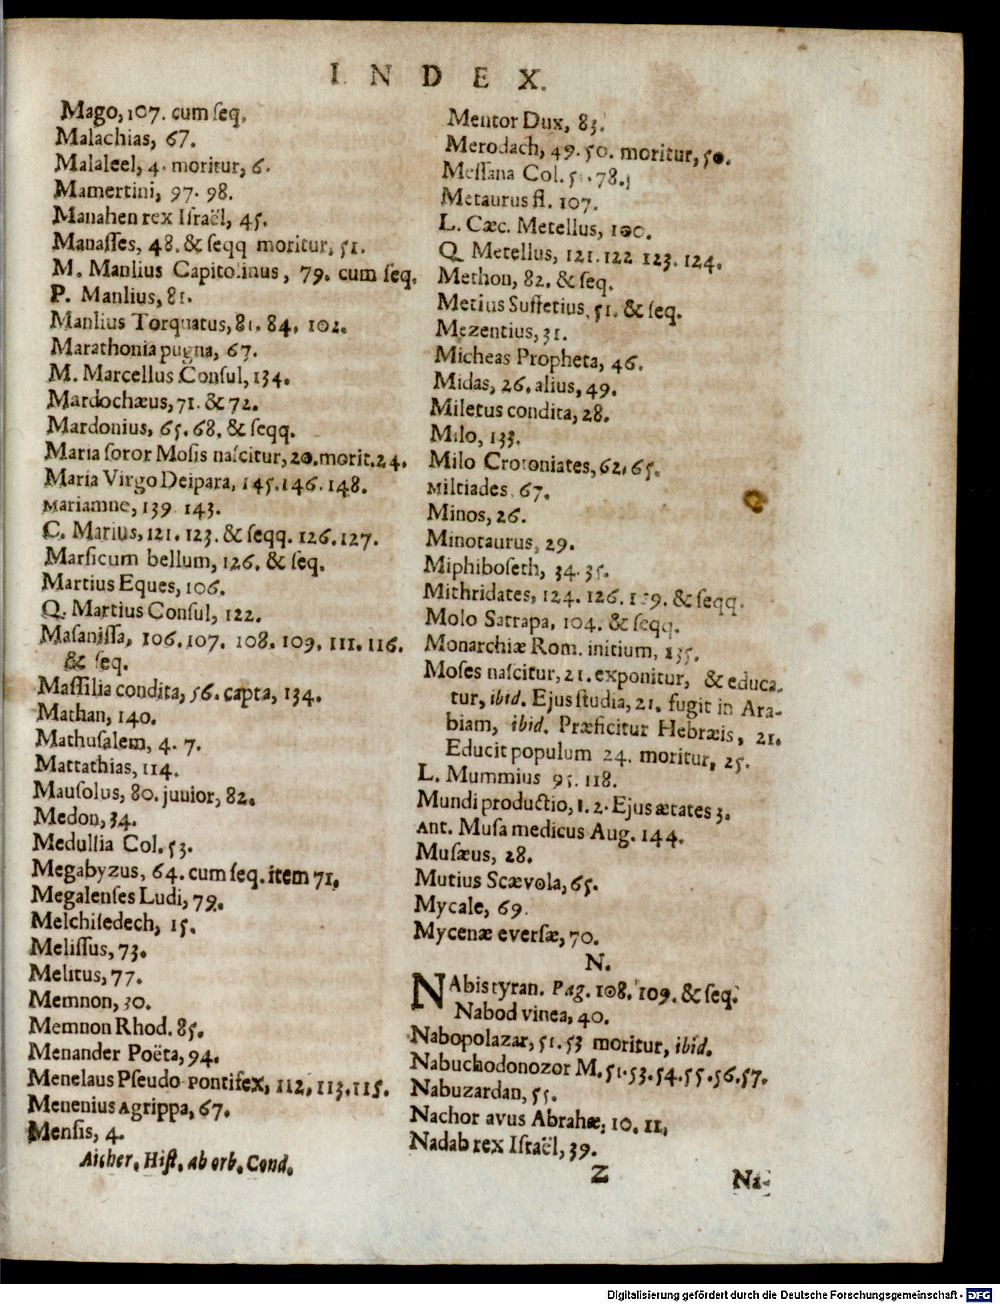 INDEX.
Mago, 107. cum ſeq.
Malachias, 67.
Malaleel, 4. moritur, 6.
Mamertini, 97. 98.
Manahen rex Iſraël, 45.
Manaſſes, 48. & ſeqq moritur, 51.
M. Manlius Capitolinus, 79. cum ſeq.
P. Manlius, 81.
Manlius Torquatus, 81. 84. 102.
Marathonia pugna, 67.
M. Marcellus Conſul, 134.
Mardochæus, 71. & 72.
Mardonius, 65. 68. & ſeqq.
Maria ſoror Moſis naſcitur, 20. morit. 24.
Maria Virgo Deipara, 145. 146. 148.
Mariamne, 139 143.
C. Marius, 121. 123. & ſeqq. 126. 127.
Marſicum bellum, 126. & ſeq.
Martius Eques, 106.
Q. Martius Conſul, 122.
Maſaniſſa, 106. 107. 108. 109. 111. 116.
& ſeq.
Maſſilia condita, 56. capta, 134.
Mathan, 140.
Mathuſalem, 4. 7.
Mattathias, 114.
Mauſolus, 80. junior, 82.
Medon, 34.
Medullia Col. 53.
Megabyzus, 64. cum ſeq. item 71.
Megalenſes Ludi, 79.
Melchiſedech, 15.
Meliſſus, 73.
Melitus, 77.
Memnon, 30.
Memnon Rhod. 85.
Menander Poëta, 94.
Menelaus Pſeudo pontifex, 112. 113. 115.
Menenius Agrippa, 67.
Menſis, 4.
Aicher. Hiſt. ab orb. Cond.
Mentor Dux, 83.
Merodach, 49. 50. moritur, 50.
Meſſana Col. 78.
Metaurus fl. 107.
L. Cæc. Metellus, 100.
Q. Metellus, 121. 122 123. 124.
Methon, 82. & ſeq.
Metius Suffetius, 51. & ſeq.
Mezentius, 31.
Micheas Propheta, 46.
Midas, 26. alius, 49.
Miletus condita, 28.
Milo, 133.
Milo Crotoniates, 62. 65.
Miltiades. 67.
Minos, 26.
Minotaurus, 29.
Miphiboſeth, 34. 35.
Mithridates, 124. 126. & ſeqq.
Molo Satrapa, 104. & ſeqq.
Monarchiæ Rom. initium, 135.
Moſes naſcitur, 21. exponitur, & educa-
tur, ibid. Ejus ſtudia, 21. fugit in Ara-
biam, ibid. Præficitur Hebræis, 21.
Educit populum 24. moritur, 25.
L. Mummius 95. 118.
Mundi productio, 1. 2. Ejus ætates 3.
Ant. Muſa medicus Aug. 144.
Muſæus, 28.
Mutius Scævola, 65.
Mycale, 69.
Mycenæ everſæ, 70.
N.
NAbis tyran. Pag. 108. 109. & ſeq.
Nabod vinea, 40.
Nabopolazar, 51. 53 moritur, ibid.
Nabuchodonozor M. 51. 53. 54. 55. 56. 57.
Nabuzardan, 55.
Nachor avus Abrahæ, 10. 11.
Nadab rex Iſraël, 39.
Z
Ni-
Digitalisierung gefördert durch die Deutsche Forschungsgemeinschaft - DFG